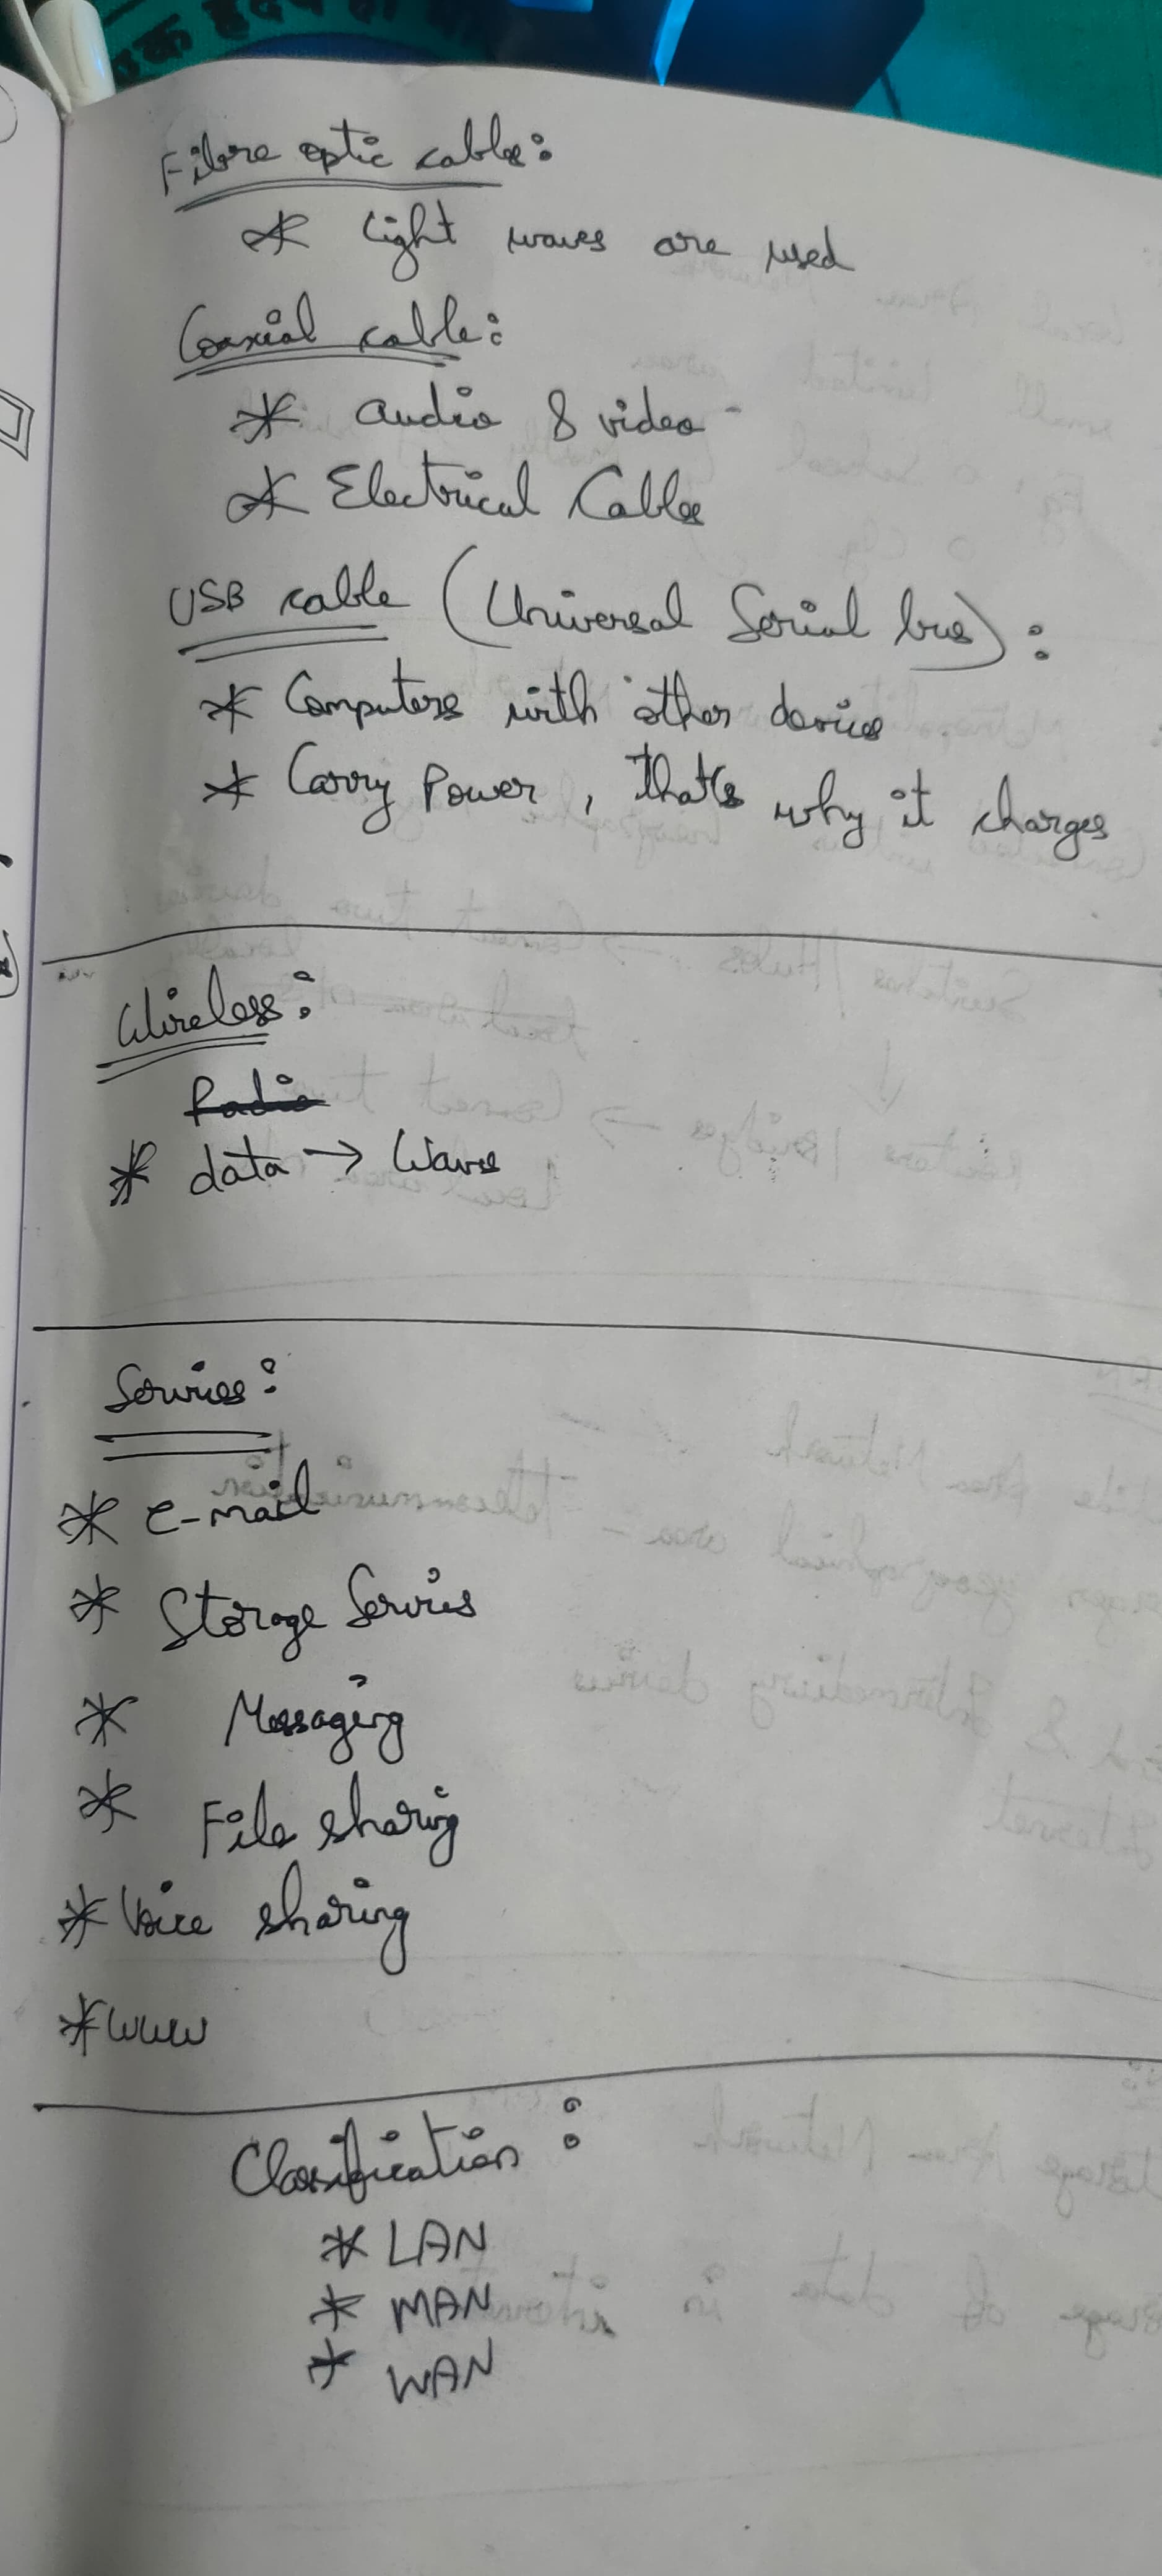 एक हृदय हो
Fibre optic cable:
* light waves are used
Coaxial cable:
* audio & video
* Electrical Cables
USB cable (Universal Serial bus):
* Computers with other devices
* Carry Power, that's why it charges
Wireless:
Radio
* data → Wave
Services:
* e-mail
* Storage Services
* Messaging
* File sharing
* Voice sharing
* www
Classification:
* LAN
* MAN
* WAN